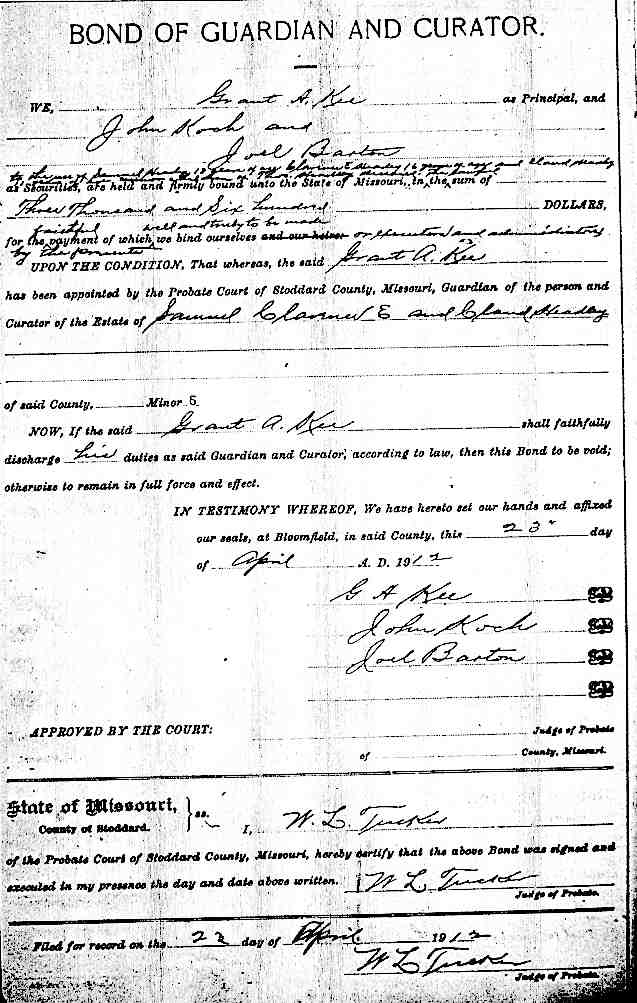 BOND OF GUARDIAN AND CURATOR.
WE, Grant A. Kee as Principal, and
John Koch and
Joel Barton
to the use of Samuel Headley 18 years of age Clarence E Headley 16 years of age and Claud Headley
as Securities, are held and firmly bound unto the State of Missouri, in the sum of
Three Thousand and Six hundred DOLLARS,
faithful well and truly to be made
for the payment of which, we bind ourselves and our heirs or executors and administrators
by the presents
UPON THE CONDITION, That whereas, the said Grant A. Kee
has been appointed by the Probate Court of Stoddard County, Missouri, Guardian of the person and
Curator of the Estate of Samuel Clarence E and Claud Headley
of said County, Minor s
NOW, If the said Grant A. Kee shall faithfully
discharge his duties as said Guardian and Curator, according to law, then this Bond to be void;
otherwise to remain in full force and effect.
IN TESTIMONY WHEREOF, We have hereto set our hands and affixed
our seals, at Bloomfield, in said County, this 23" day
of April A. D. 1912
G A Kee
John Koch
Joel Barton
APPROVED BY THE COURT: Judge of Probate
of County, Missouri.
State of Missouri, ss.
County of Stoddard. I, W. L. Tucker
of the Probate Court of Stoddard County, Missouri, hereby certify that the above Bond was signed and
executed in my presence the day and date above written. W L Tucker
Judge of Probate.
Filed for record on the 23 day of April 1912
W L Tucker
Judge of Probate.